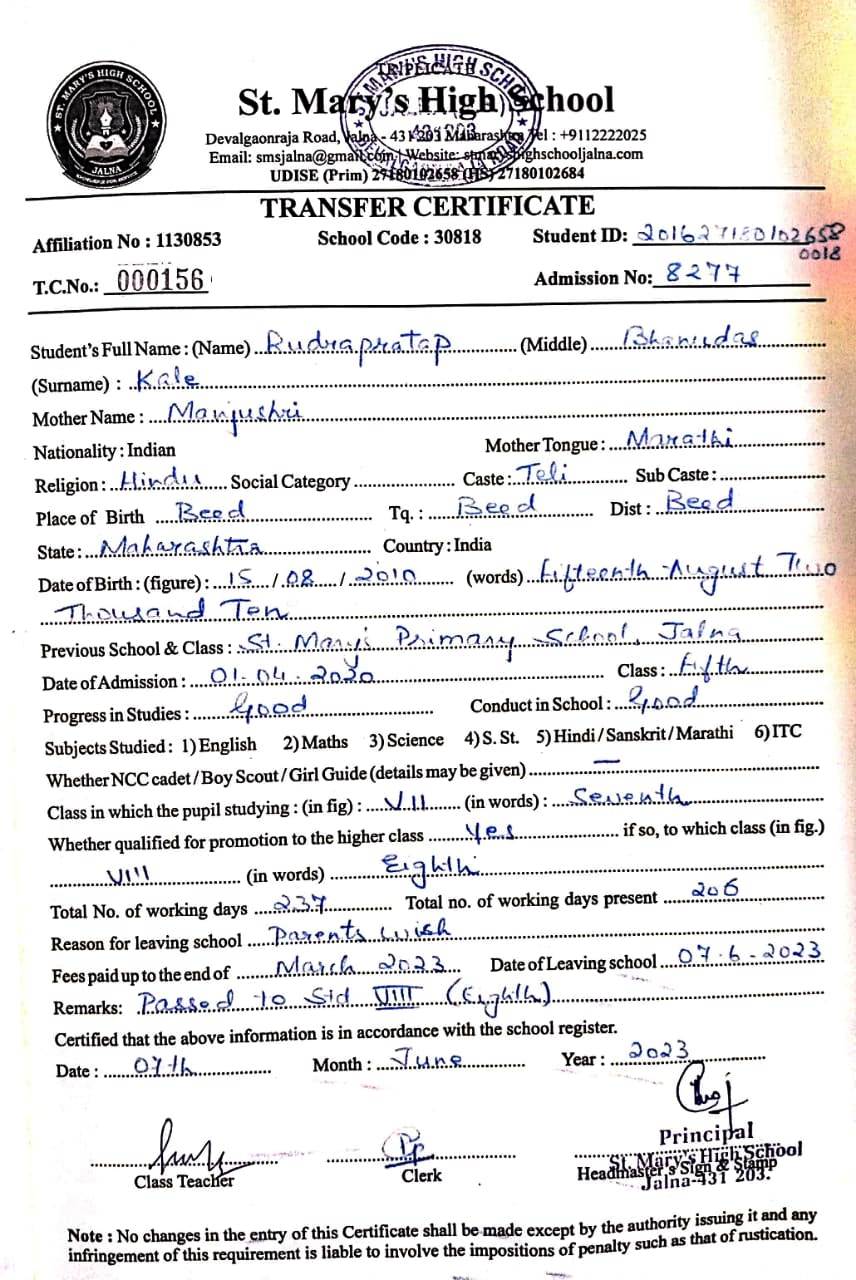 ST. MARY'S HIGH SCHOOL
JALNA
KNOWLEDGE FOR SERVICE
TRIPLICATE
St. Mary's High School
Devalgaonraja Road, Jalna - 431 203 Maharashtra Tel : +9112222025
Email: smsjalna@gmail.com | Website: stmaryshighschooljalna.com
UDISE (Prim) 27180102658 (HS) 27180102684
TRANSFER CERTIFICATE
Affiliation No : 1130853 School Code : 30818 Student ID: 201627180102658
0018
T.C.No.: 000156 Admission No: 8277
Student's Full Name : (Name) Rudrapratap (Middle) Bhanudas
(Surname) : Kale
Mother Name : Manjushri
Nationality : Indian Mother Tongue : Marathi
Religion : Hindu Social Category Caste : Teli Sub Caste :
Place of Birth Beed Tq. : Beed Dist : Beed
State : Maharashtra Country : India
Date of Birth : (figure) : 15 / 08 / 2010 (words) Fifteenth August Two
Thousand Ten
Previous School & Class : St. Mary's Primary School, Jalna
Date of Admission : 01-04-2020 Class : Fifth
Progress in Studies : Good Conduct in School : Good
Subjects Studied : 1) English 2) Maths 3) Science 4) S. St. 5) Hindi / Sanskrit / Marathi 6) ITC
Whether NCC cadet / Boy Scout / Girl Guide (details may be given) —
Class in which the pupil studying : (in fig) : VII (in words) : Seventh
Whether qualified for promotion to the higher class Yes if so, to which class (in fig.)
VIII (in words) Eighth
Total No. of working days 237 Total no. of working days present 206
Reason for leaving school Parents wish
Fees paid up to the end of March 2023 Date of Leaving school 07-6-2023
Remarks: Passed to Std VIII (Eighth)
Certified that the above information is in accordance with the school register.
Date : 07th Month : June Year : 2023
Principal
St. Mary's High School
Class Teacher Clerk Headmaster's Sign & Stamp
Jalna-431 203.
Note : No changes in the entry of this Certificate shall be made except by the authority issuing it and any
infringement of this requirement is liable to involve the impositions of penalty such as that of rustication.